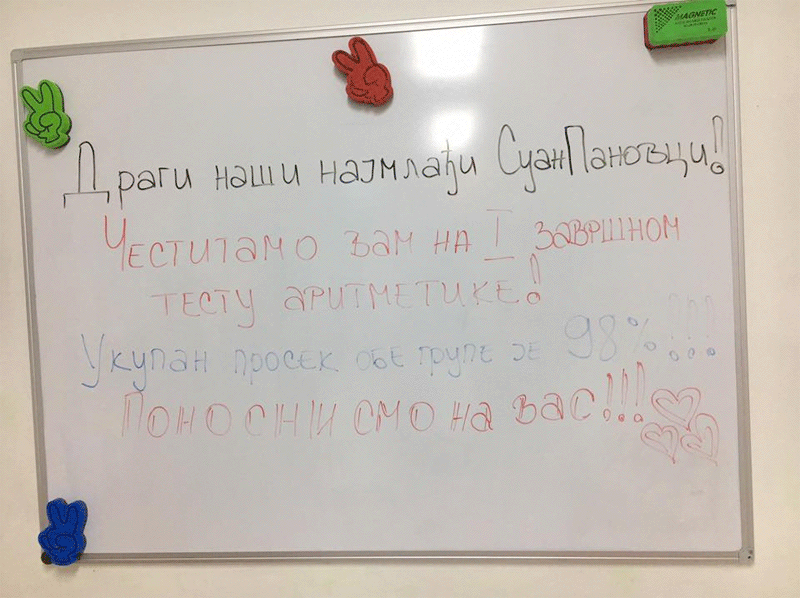 MAGNETIC
Драги наши најмлађи СуанПановци!
Честитамо вам на I завршном
тесту аритметике!
Укупан просек обе групе је 98%!!!
Поносни смо на вас!!!